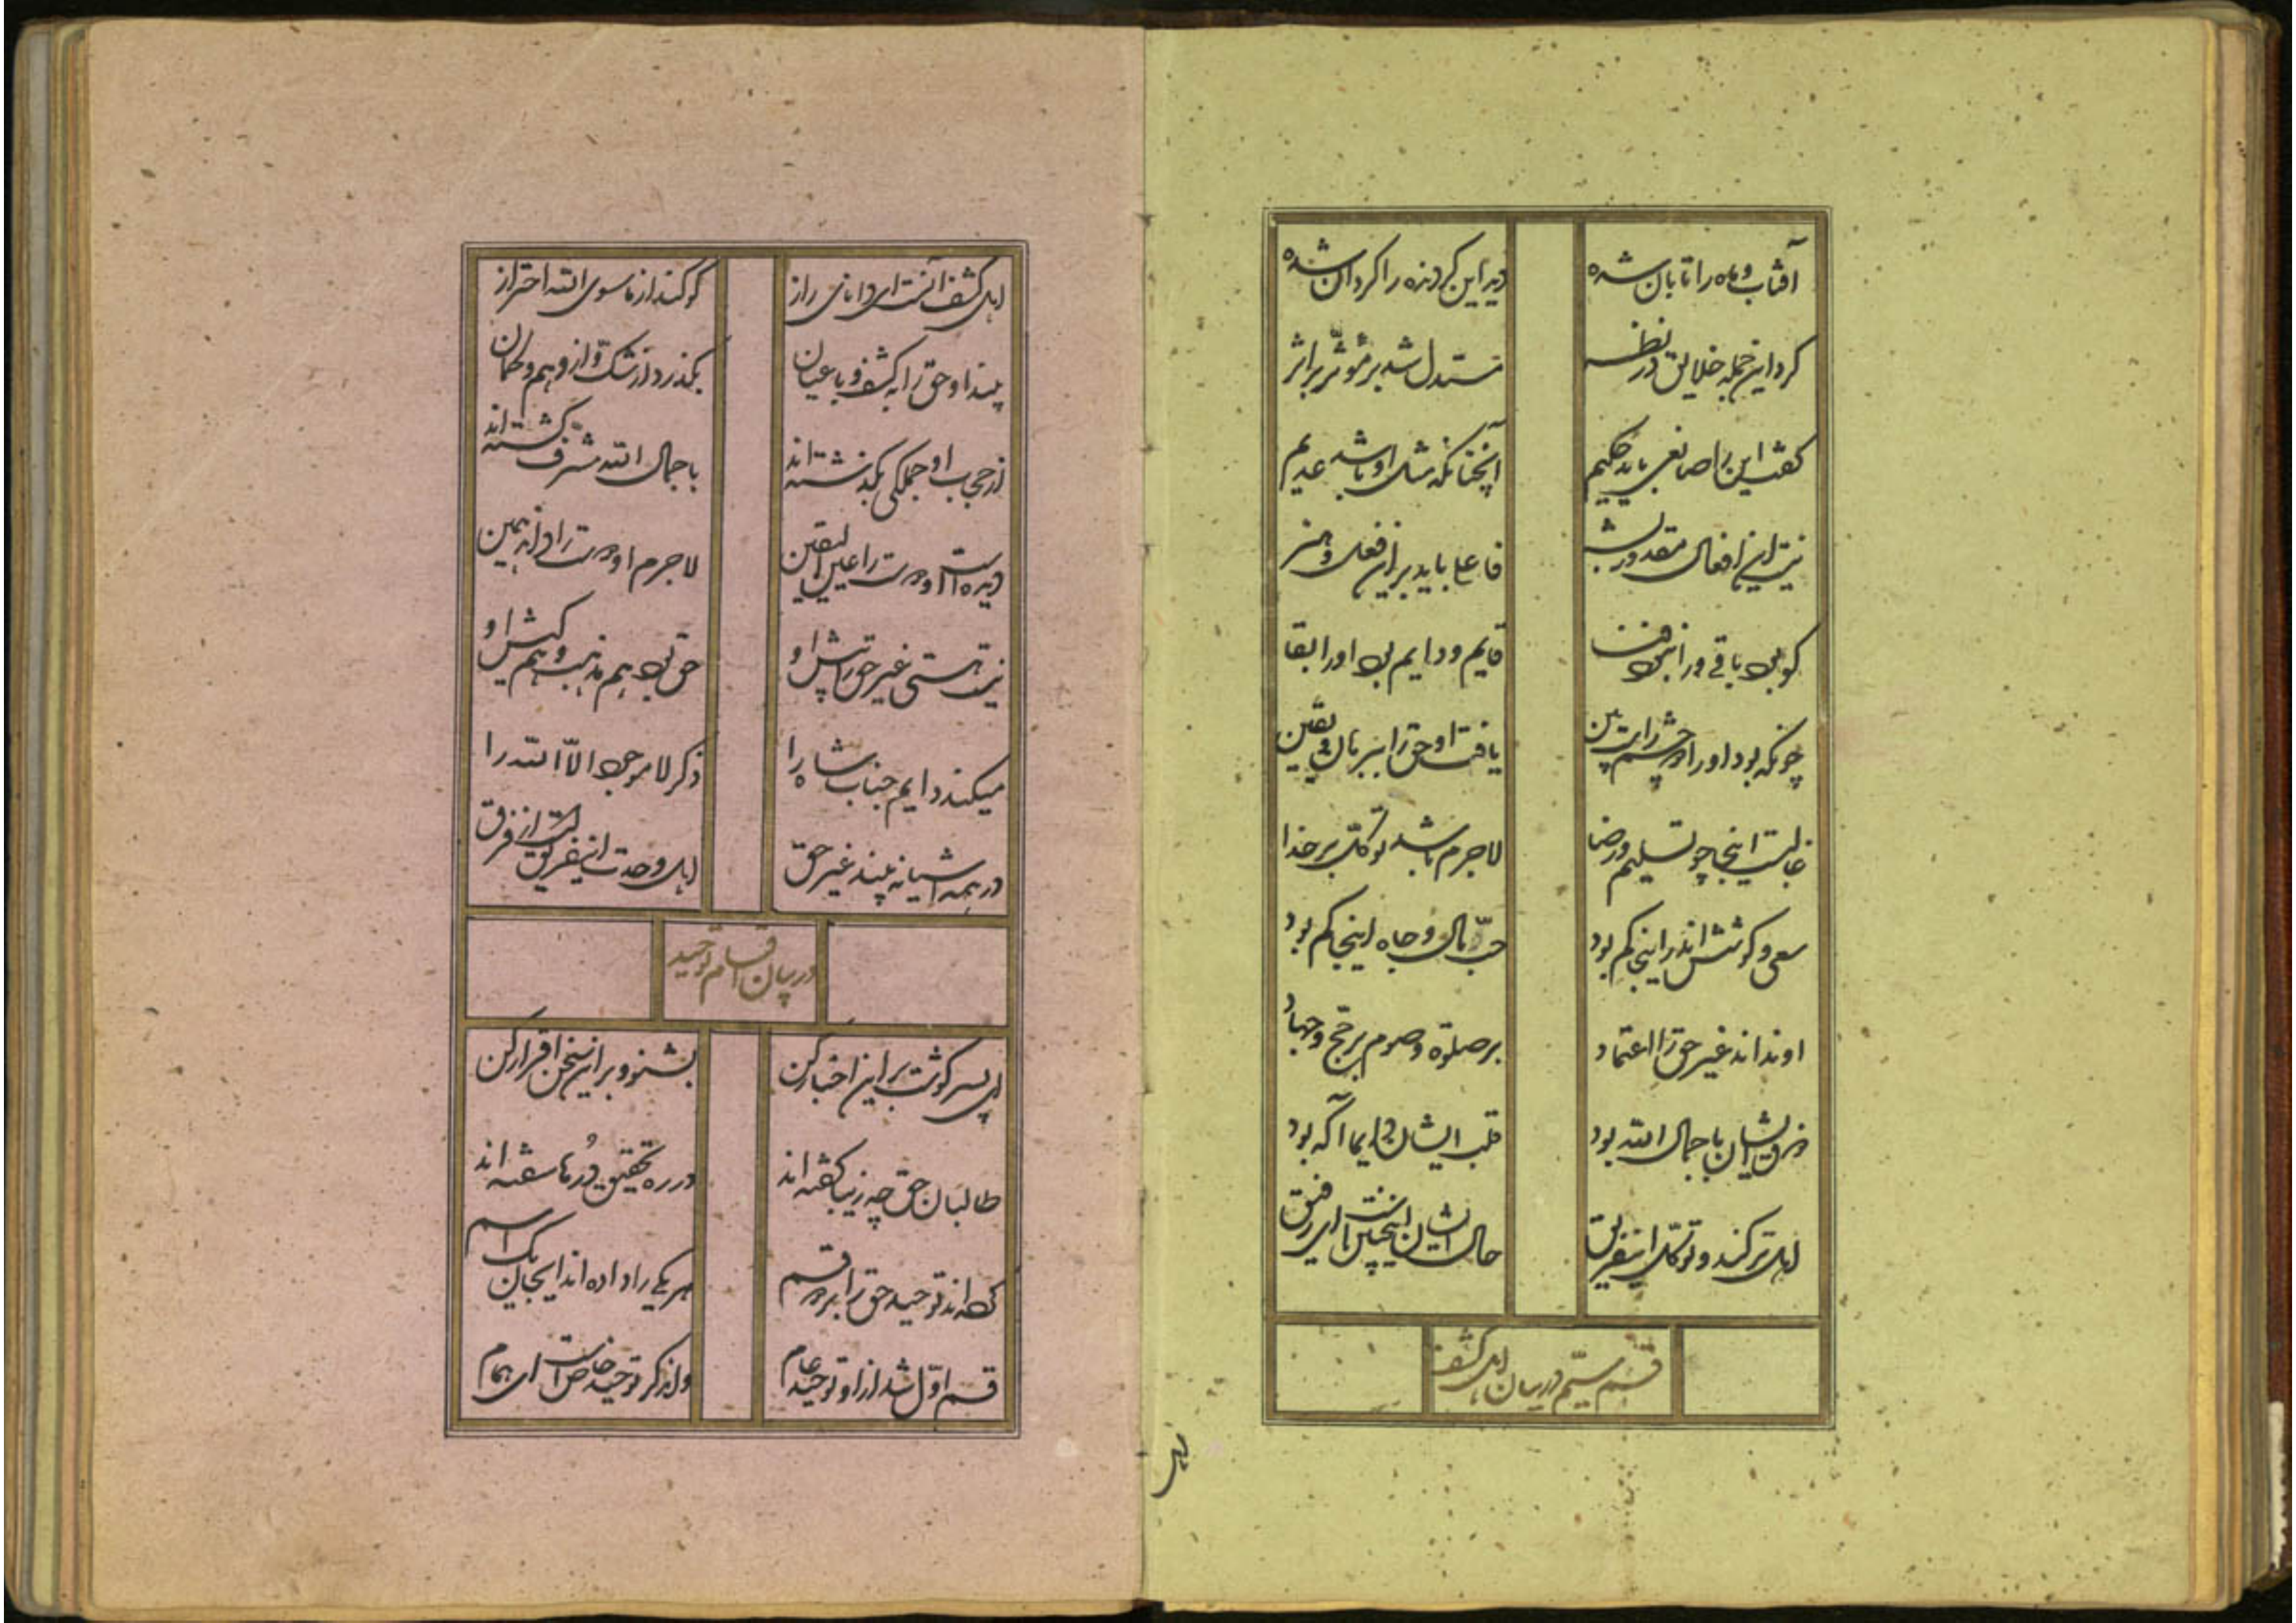 آفتاب و ماه را تابان شده
دید این گردنده را گردان شده
کرد این جمله خلایق در نظر
مستدل شد بر مؤثر بر اثر
گفت این را صانعی باید حکیم
آنچنانکه مثل او باشد عدیم
نیست این افعال مقدور بشر
فاعلی باید بر این فعل و هنر
کو بود باقی ورا نبود فنا
قایم و دایم بود او را بقا
چونکه بود او را دو چشم راست بین
یافت او حق را ببرهان و یقین
غالبست اینجا چو تسلیم و رضا
لاجرم باشد توکل بر خدا
سعی و کوشش اندر اینجا کم بود
حب مال و جاه اینجا کم بود
او نداند غیر حق را اعتماد
بر صلوة و صوم بر حج و جهاد
ذوق ایشان با جمال الله بود
قلب ایشان دایما آگه بود
اهل ترکند و توکل این فریق
حال ایشان اینچنین است ای رفیق
قسم سیم در بیان اهل کشف
اهل
اهل کشف آنست ای دانای راز
کو کند از ماسوی الله احتراز
بیند او حق را به کشف و با عیان
بگذرد از شک و از وهم و گمان
از حجب او جملگی بگذشته‌اند
با جمال الله مشرف گشته‌اند
دیده است او دوست را عین الیقین
لاجرم او دوست را داند همین
نیست هستی غیر حق در پیش او
حق بود هم مذهب و هم کیش او
میکند دایم جناب شاه را
ذکر لا موجود الا الله را
در همه اشیا نه بیند غیر حق
اهل وحدت این فریق است از فرق
در بیان اقسام توحید
ای پسر گوشت بر این اخبار کن
بشنو و بر این سخن اقرار کن
طالبان حق چه زیبا گفته‌اند
در ره تحقیق دُرها سفته‌اند
گفته‌اند توحید حق را بر دو قسم
هر یکی را داده‌اند اینجا یک اسم
قسم اول شد از او توحید عام
وان دگر توحید خاص است ای همام